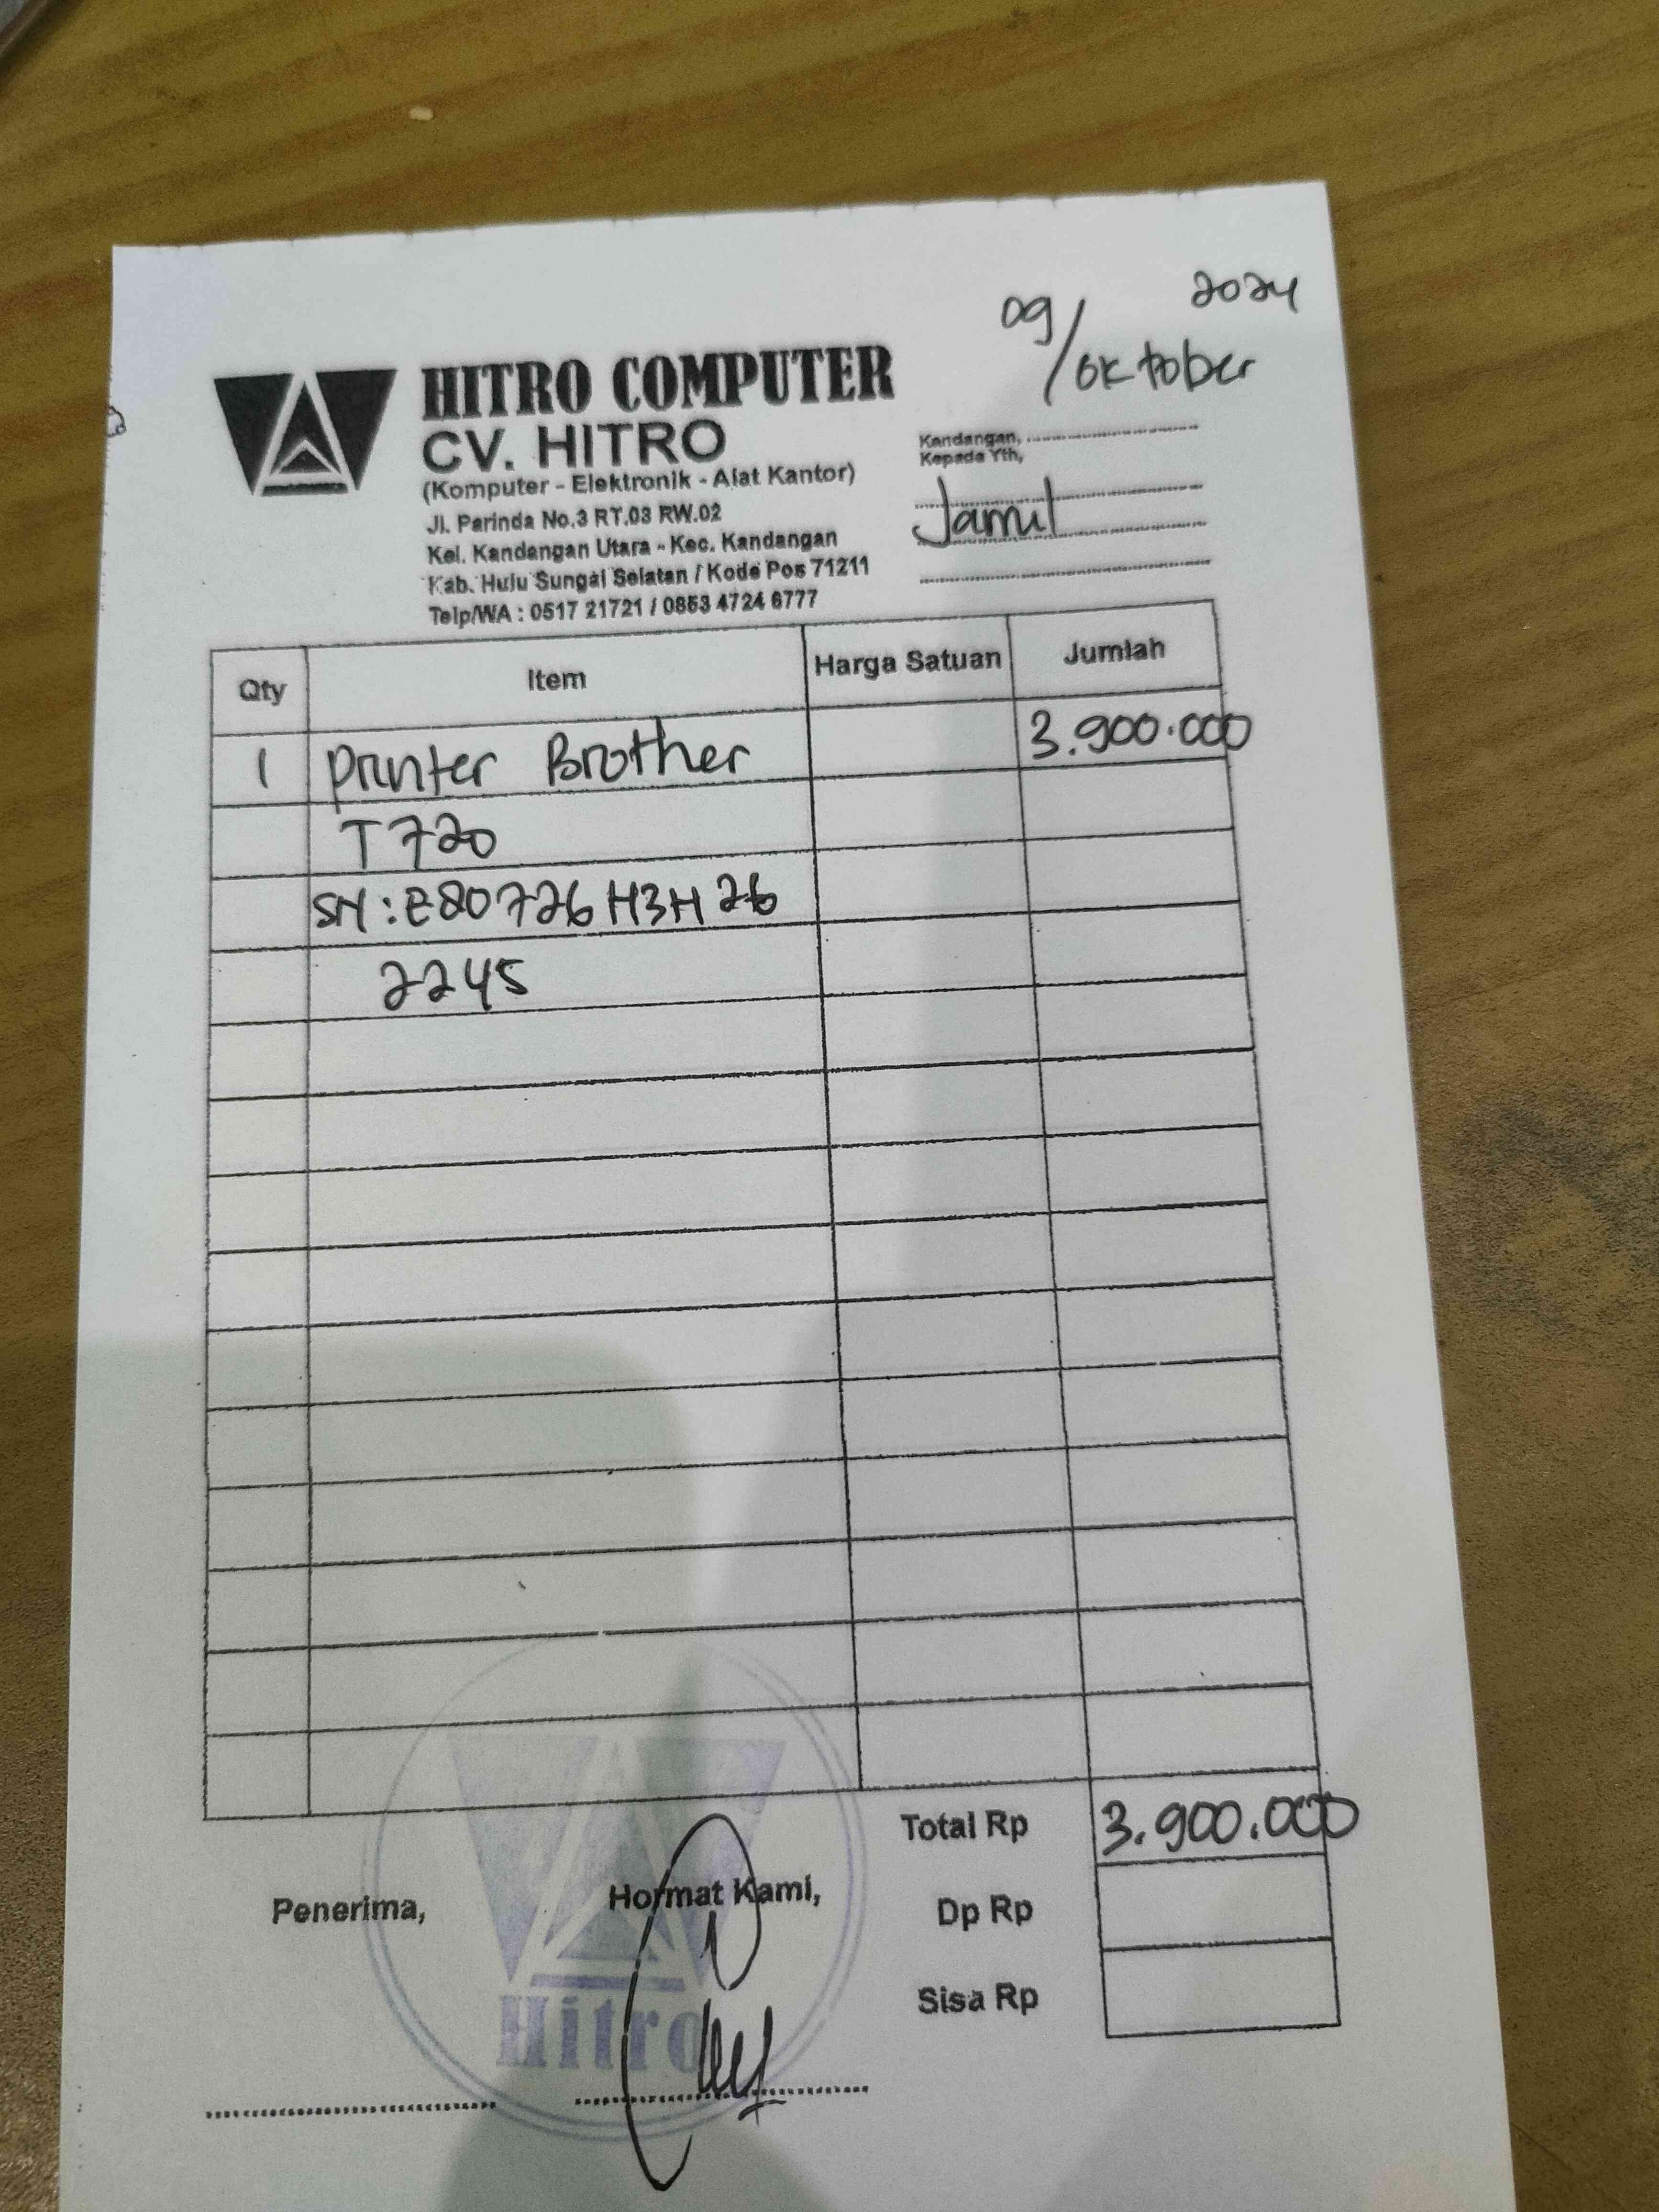 2024
09/Oktober
HITRO COMPUTER
CV. HITRO
(Komputer - Elektronik - Alat Kantor)
Jl. Parinda No.3 RT.03 RW.02
Kel. Kandangan Utara - Kec. Kandangan
Kab. Hulu Sungai Selatan / Kode Pos 71211
Telp/WA : 0517 21721 / 0853 4724 6777
Kandangan,
Kepada Yth,
Jamil
Qty Item Harga Satuan Jumlah
1 Printer Brother 3.900.000
T720
SN : E80726H3H26
2245
Total Rp 3.900.000
Penerima, Hormat Kami, Dp Rp
Sisa Rp
Hitro